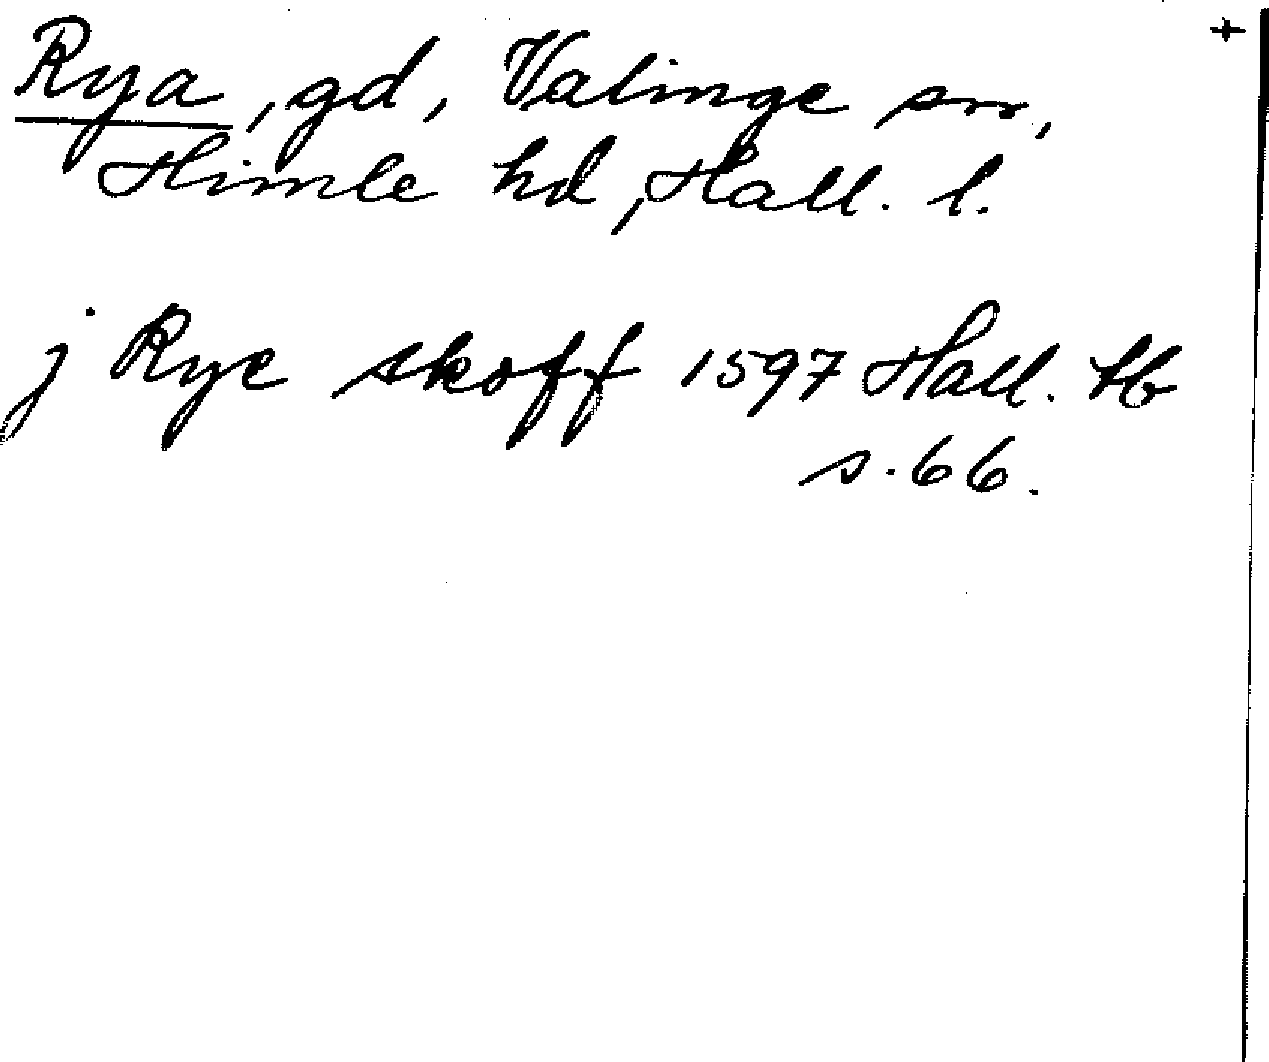 +
Rya, gd, Valinge sn,
Himle hd, Hall. l.
j Rye skoff 1597 Hall. tb
s. 66.